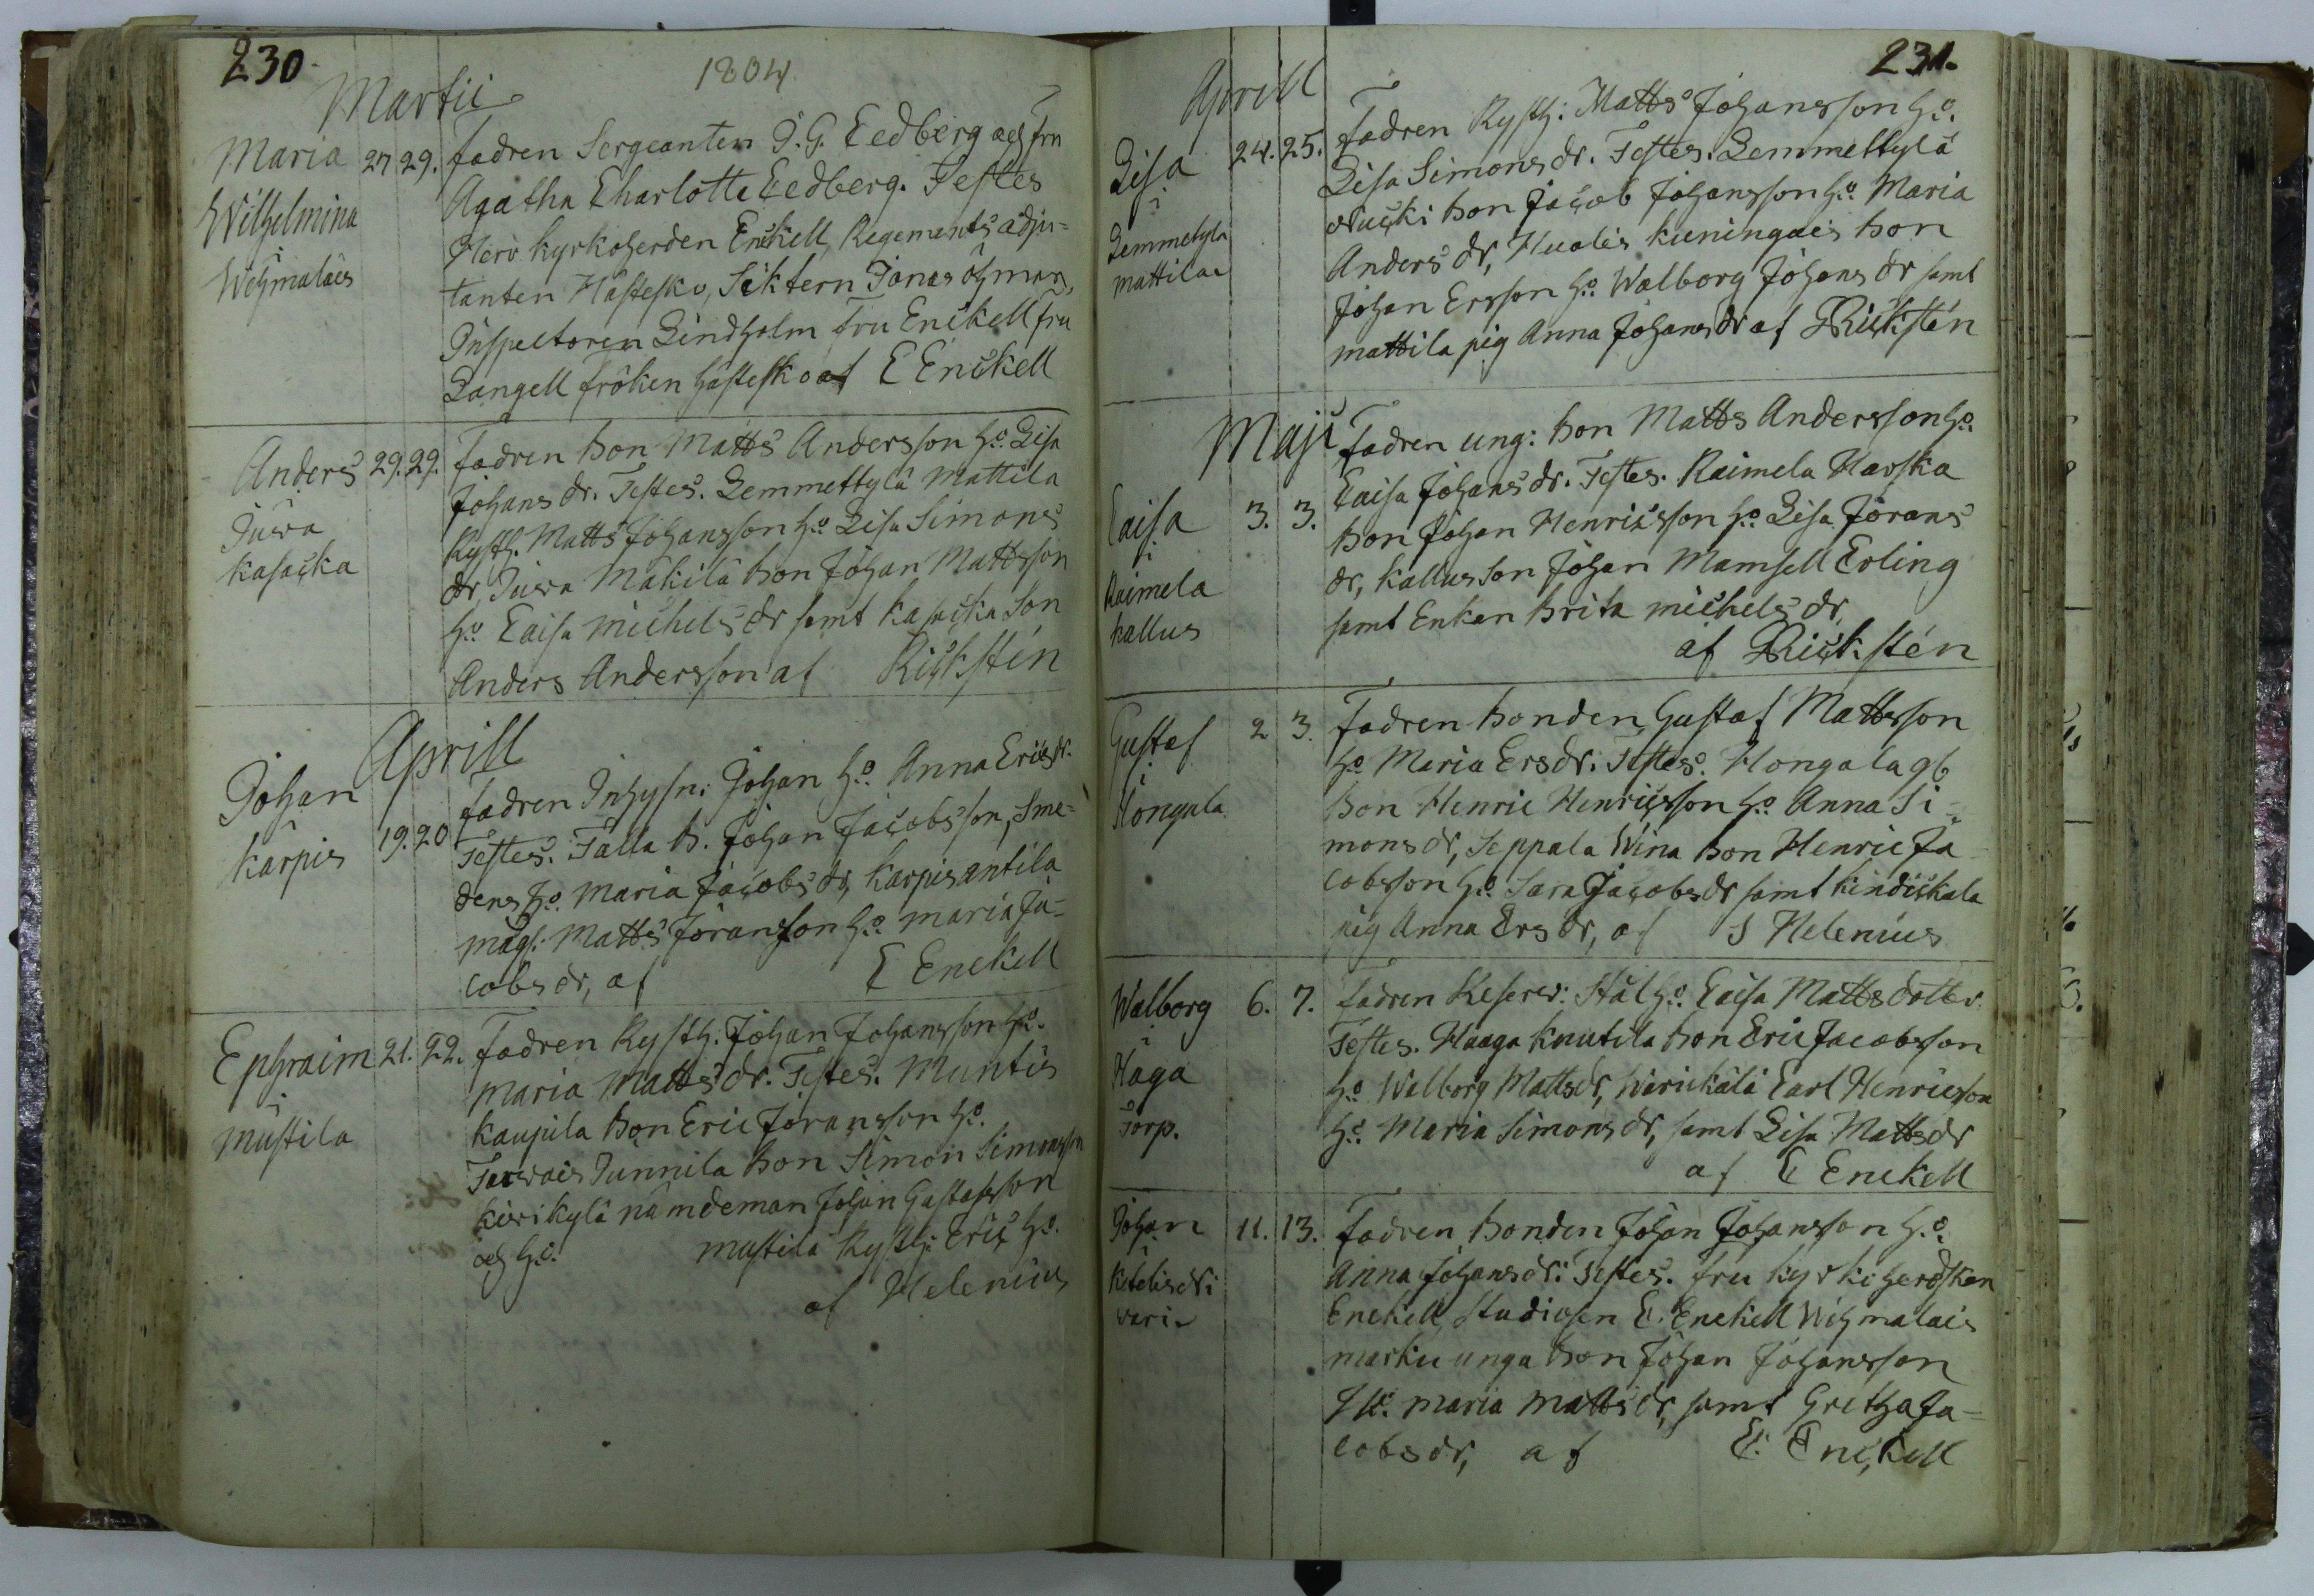 230
1804
Martii
Maria
Wilhelmina
Wehmalais
27 29.
fadren Sergeanten P. G. Cedberg och fru
Agatha Charlotta Cedberg. Testes
Herr kyrkoherden Enckell, Regements adju-
tanten Hästesko, Siktern Jonas Öhman,
Inspectoren Lindholm fru Enckell fru
Langell fröken hästesko af E Enckell
Anders
Juwa
kasacka
29. 29.
fadren bon Matts Andersson h:o Lisa
Johans dr. Testes. Lemmettylä Mattila
Rysth. Matts Johansson h:o Lisa Simons
dr, Juwa Mäkilä bon Johan Mattsson
h:o Caisa Michels dr samt kasacka Son
Anders Andersson af Rickstén
Aprill
Johan
karpis
19. 20
fadren Inhysn: Johan h:o Anna Ericsdr.
Testes. Talla b. Johan Jacobsson, Sme-
dens h:o Maria Jacobs dr, karpis antila
mågs: Matts Joransson h:o maria Ja-
cobs dr, af E Enckell
Ephraim
i
mustila
21. 22.
Fadren Rysth: Johan Johansson h:o
Maria Matts dr. Testes. Muntis
kaupila bon Eric Joransson h:o
Junnila bon Simon Simonsson
kirikylä nämdeman Johan Gustafsson
och h:o mustila Rysth: Eric h:o
af Helenius
231.
Aprill
Lisa
i
Lemmetylä
mattila
24. 25.
Fadren Rysth: Matts Johansson h:o
Lisa Simons dr. Testes. Lemmettylä
Nucki bon Jacob Johansson h:o Maria
Anders dr, Hualis kuningais bon
Johan Ersson h:o Walborg Johans dr samt
mattila pig Anna Johans dr af Rickstén
Maji
Caisa
i
Raimela
kallus
3. 3.
Fadren ung: bon Matts Andersson h:o
Caisa Johans dr. Testes. Raimela Harska
bon Johan Henricsson h:o Lisa Jorans
dr, kallus Son Johan Mamsell Erling
samt Enkan brita michels dr,
af Rickstén
Gustaf
i
Hongala
2 3.
Fadren bonden Gustaf Mattsson
h:o Maria Ersdr: Testes. Hongala gb
bon Henric Henricsson h:o Anna Si-
mons dr, Seppala Wina bon Henric Ja
cobsson h:o Sara Jacobsdr samt kindickala
pig Anna Ers dr, af S Helenius
Walborg
i
Haga
Torp.
6. 7.
fadren Reserv: Stål h:o Caisa Matts dotter.
Testes. Haaga knutila bon Eric Jacobsson
h:o Walborg Matts dr, Carl Henricsson
h:o Maria Simons dr, samt Lisa Matts dr
af E Enckell
Johan
i
wari
11. 13.
Fadren bonden Johan Johansson h:o
Anna Johans dr: Testes. fru kyrkiherdskan
Enckell, Studiosen E. Enckell Wehmalais
marku unga bon Johan Johansson
h:o maria matts dr, samt Gretha Ja-
cobs dr, af E. Enckell